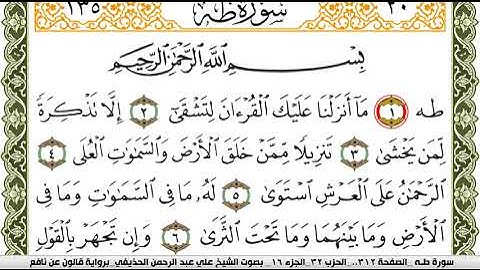 ٢٠ سُورَةُ طه ١٣٥
بِسْمِ اللَّهِ الرَّحْمَٰنِ الرَّحِيمِ
طه ١ مَا أَنزَلْنَا عَلَيْكَ الْقُرْءَانَ لِتَشْقَىٰ ٢ إِلَّا تَذْكِرَةً
لِّمَن يَخْشَىٰ ٣ تَنزِيلًا مِّمَّنْ خَلَقَ الْأَرْضَ وَالسَّمَٰوَٰتِ الْعُلَى ٤
الرَّحْمَٰنُ عَلَى الْعَرْشِ اسْتَوَىٰ ٥ لَهُ مَا فِي السَّمَٰوَٰتِ وَمَا فِي
الْأَرْضِ وَمَا بَيْنَهُمَا وَمَا تَحْتَ الثَّرَىٰ ٦ وَإِن تَجْهَرْ بِالْقَوْلِ
سورة طـه _الصفحة ٣١٢... الحزب ٣٢_الجزء ١٦ _ بصوت الشيخ علي عبد الرحمن الحذيفي_ برواية قالون عن نافع